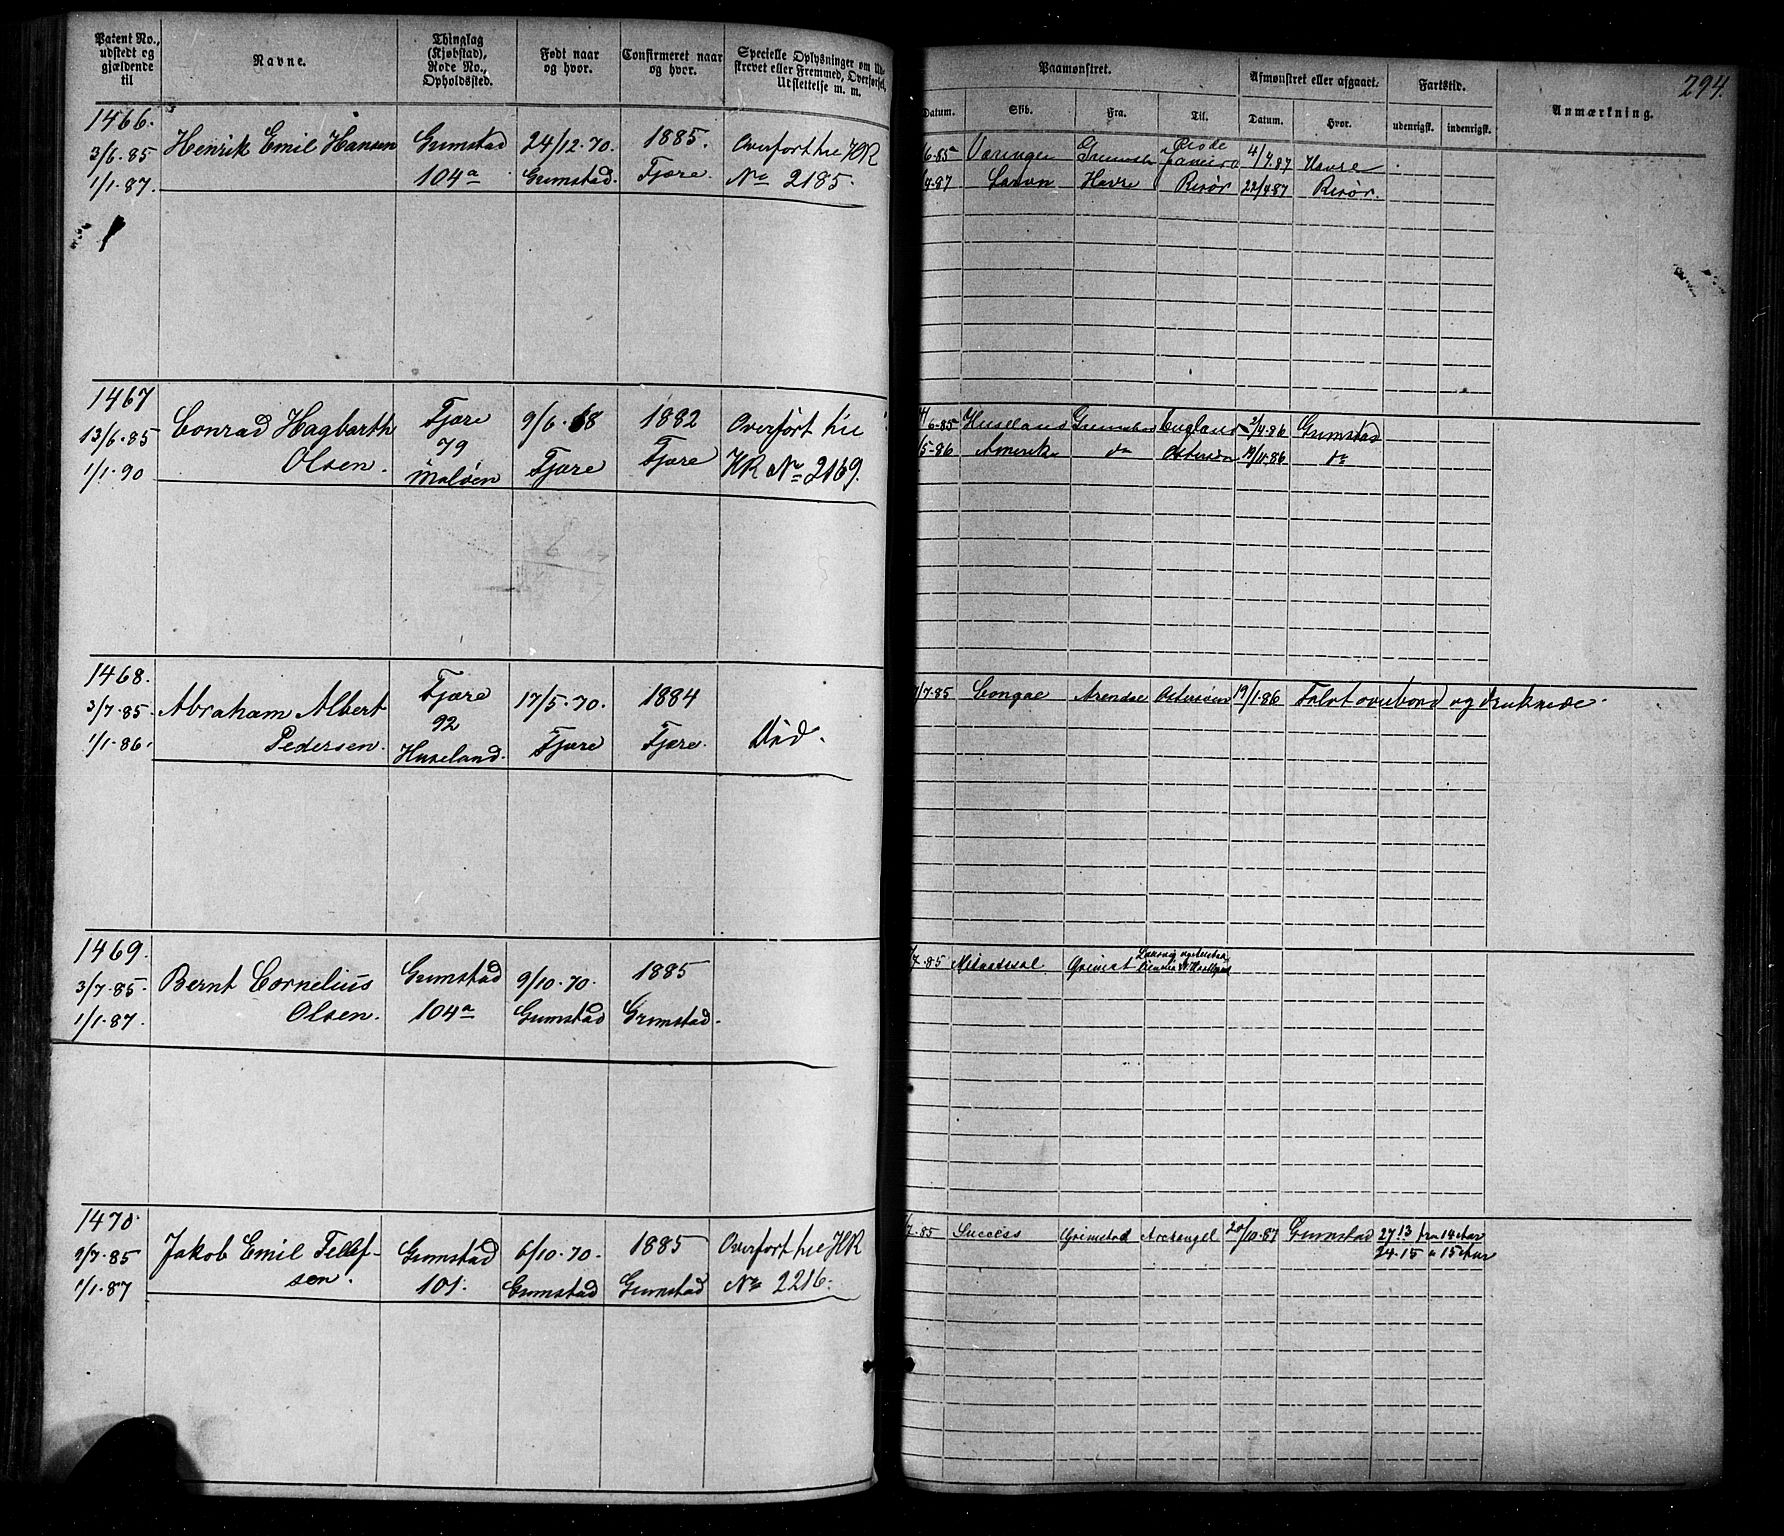 Patent No., udstedt og gjældende til
Navne.
Thinglag (Kjøbstad), Rode No., Opholdssted.
Født naar og hvor.
Confirmeret naar og hvor.
Specielle Oplysninger om Ud-
skrevet eller Fremmed, Overførsel,
Udslettelse m. m.
294.
Paamønstret.
Afmønstret eller afgaaet.
Fartstid.
Anmærkning.
Datum.
Skib.
Fra.
Til.
Datum.
Hvor.
udenrigsk.
indenrigsk.
1466.
3/6.85
1/1.87.
Henrik Emil Hansen
Grimstad
104a
24/12.70.
Grimstad.
1885.
Fjære.
Overført til HR
No 2185.
6.85 Væringen Grimstad Rio de Janeiro 4/4.87 Havre
4.87 Havre Risør 22/4.87 Risør.
1467
13/6.85
1/1.90
Conrad Hagbarth
Olsen.
Fjære
79
Maløen
9/6.68
Fjære
1882
Fjære
Overført til
HR No 2169.
6.85 Huseland Grimstad England 2/4.86 Grimstad
5.86 Amerika do Østersøen 19/11.86 do
1468.
3/7.85
1/1.86.
Abraham Albert
Pedersen.
Fjære
92
Huseland.
17/5.70.
Fjære
1884
Fjære.
Død.
7.85 Arendal Østersøen 19/1.86 Faldt overbord og druknede.
1469.
3/7.85.
1/1.87.
Bernt Cornelius
Olsen.
Grimstad
104a
9/10.70.
Grimstad
1885
Grimstad.
7.85 Grimst
1470.
9/7.85
1/1.87
Jakob Emil Tellef-
sen.
Grimstad
101.
6/10.70.
Grimstad
1885
Grimstad
Overført til HR
No 2216.
7.85 Success Grimstad Archangel 20/10.87 Grimstad 27.13 fra 14 Aar
24.15 " 15 Aar